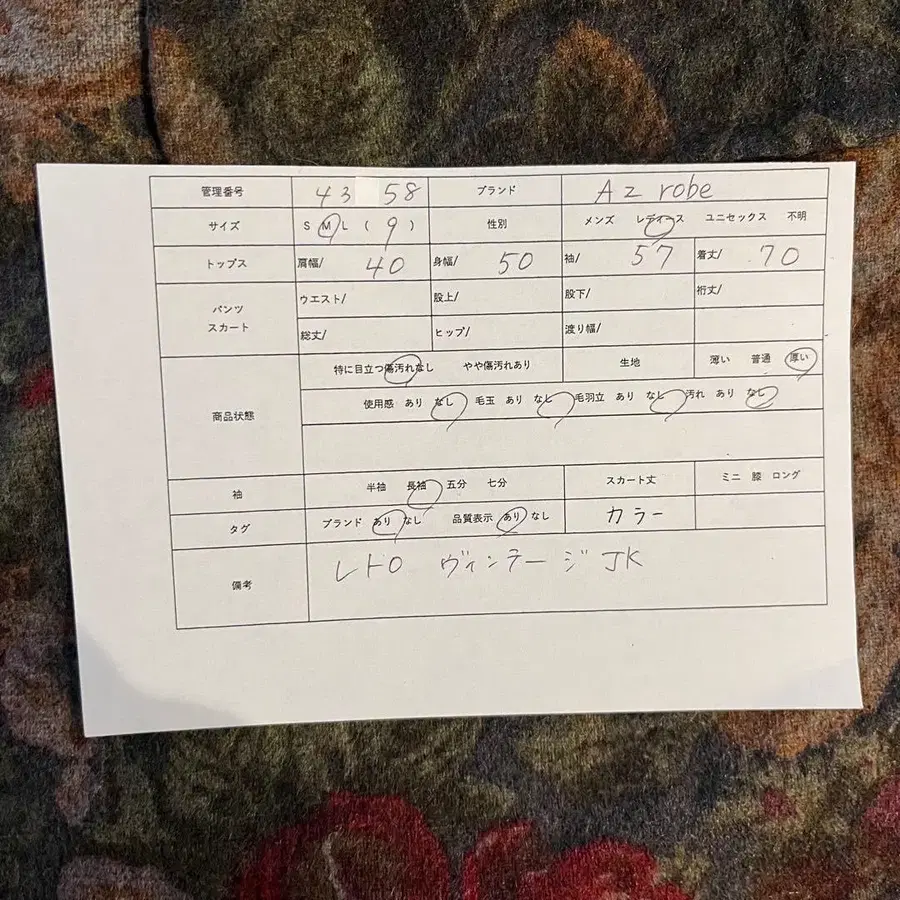 管理番号 43 58 ブランド Az robe
サイズ S M L ( 9 ) 性別 メンズ レディース ユニセックス 不明
トップス 肩幅/ 40 身幅/ 50 袖/ 57 着丈/ 70
パンツ スカート ウエスト/ 股上/ 股下/ 裄丈/
総丈/ ヒップ/ 渡り幅/
商品状態 特に目立つ傷汚れなし やや傷汚れあり 生地 薄い 普通 厚い
使用感 あり なし 毛玉 あり なし 毛羽立 あり なし 汚れ あり なし
袖 半袖 長袖 五分 七分 スカート丈 ミニ 膝 ロング
タグ ブランド あり なし 品質表示 あり なし カラー
備考 レトロ ヴィンテージ JK